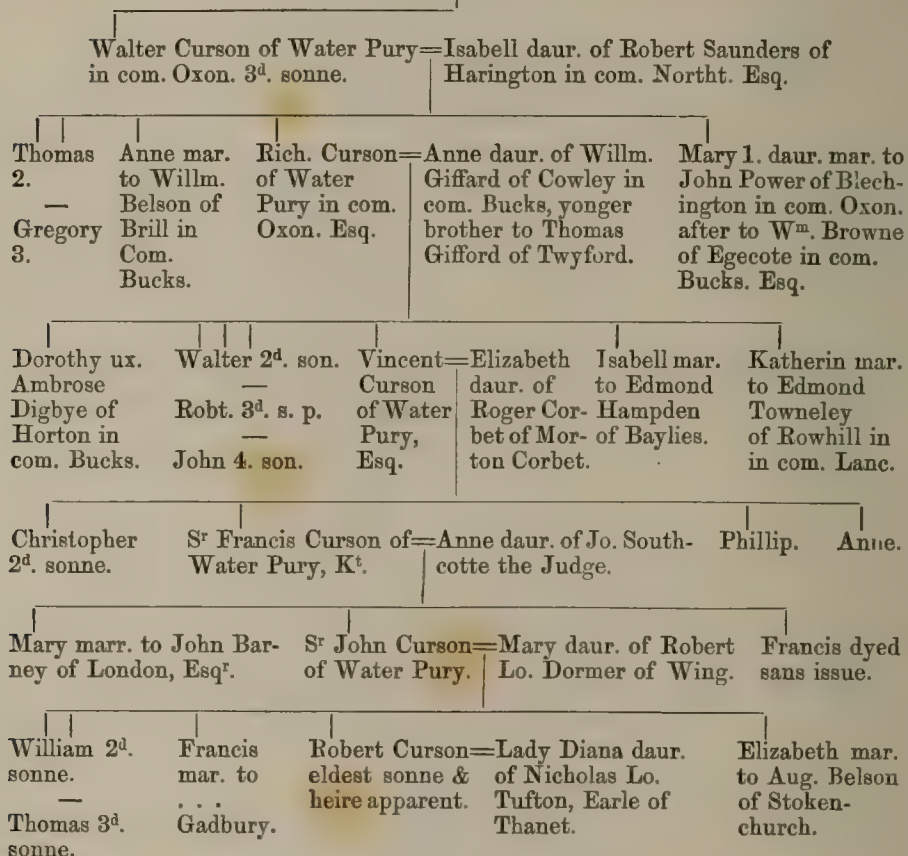 Walter Curson of Water Pury=Isabell daur. of Robert Saunders of
in com. Oxon. 3d. sonne.
Harington in com. Northt. Esq.
Thomas
2.
—
Gregory
3.
Anne mar.
to Willm.
Belson of
Brill in
Com.
Bucks.
Rich. Curson=Anne daur. of Willm.
of Water
Pury in com.
Oxon. Esq.
Giffard of Cowley in
com. Bucks, yonger
brother to Thomas
Gifford of Twyford.
Mary 1. daur. mar. to
John Power of Blech-
ington in com. Oxon.
after to Wm. Browne
of Egecote in com.
Bucks. Esq.
Dorothy ux.
Ambrose
Digbye of
Horton in
com. Bucks.
Walter 2d. son.
—
Robt. 3d. s. p.
—
John 4. son.
Vincent=Elizabeth
Curson
of Water
Pury,
Esq.
daur. of
Roger Cor-
bet of Mor-
ton Corbet.
Isabell mar.
to Edmond
Hampden
of Baylies.
Katherin mar.
to Edmond
Towneley
of Rowhill in
in com. Lanc.
Christopher
2d. sonne.
Sr Francis Curson of=Anne daur. of Jo. South-
Water Pury, Kt.
cotte the Judge.
Phillip.
Anne.
Mary marr. to John Bar-
ney of London, Esqr.
Sr John Curson=Mary daur. of Robert
of Water Pury.
Lo. Dormer of Wing.
Francis dyed
sans issue.
William 2d.
sonne.
—
Thomas 3d.
sonne.
Francis
mar. to
. . .
Gadbury.
Robert Curson=Lady Diana daur.
eldest sonne &
heire apparent.
of Nicholas Lo.
Tufton, Earle of
Thanet.
Elizabeth mar.
to Aug. Belson
of Stoken-
church.